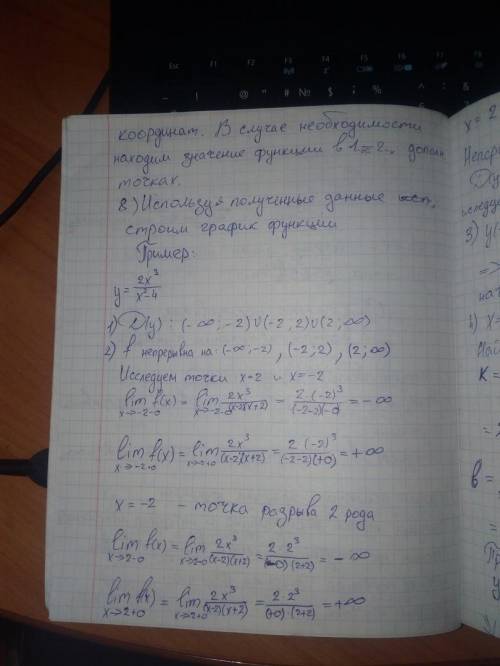 координат. В случае необходимости
находим значение функции в 1-2 допол.
точках.
8) Используя полученные данные
строим график функции
Пример:
y = 2x³/(x²-4)
1) D(y): (-∞; -2)∪(-2; 2)∪(2; ∞)
2) f непрерывна на: (-∞; -2), (-2; 2), (2; ∞)
Исследуем точки x=2 и x=-2
lim x→-2-0 f(x) = lim x→-2-0 2x³/((x-2)(x+2)) = 2·(-2)³/((-2-2)(-0)) = -∞
lim x→-2+0 f(x) = lim x→-2+0 2x³/((x-2)(x+2)) = 2(-2)³/((-2-2)(+0)) = +∞
x = -2 - точка разрыва 2 рода
lim x→2-0 f(x) = lim x→2-0 2x³/((x-2)(x+2)) = 2·2³/((-0)(2+2)) = -∞
lim x→2+0 f(x) = lim x→2+0 2x³/((x-2)(x+2)) = 2·2³/((+0)·(2+2)) = +∞
x = 2
3) y(
=>
4) x=
K =
=
в =
=
Esc
F1
F2
F3
F4
F5
F6
F7